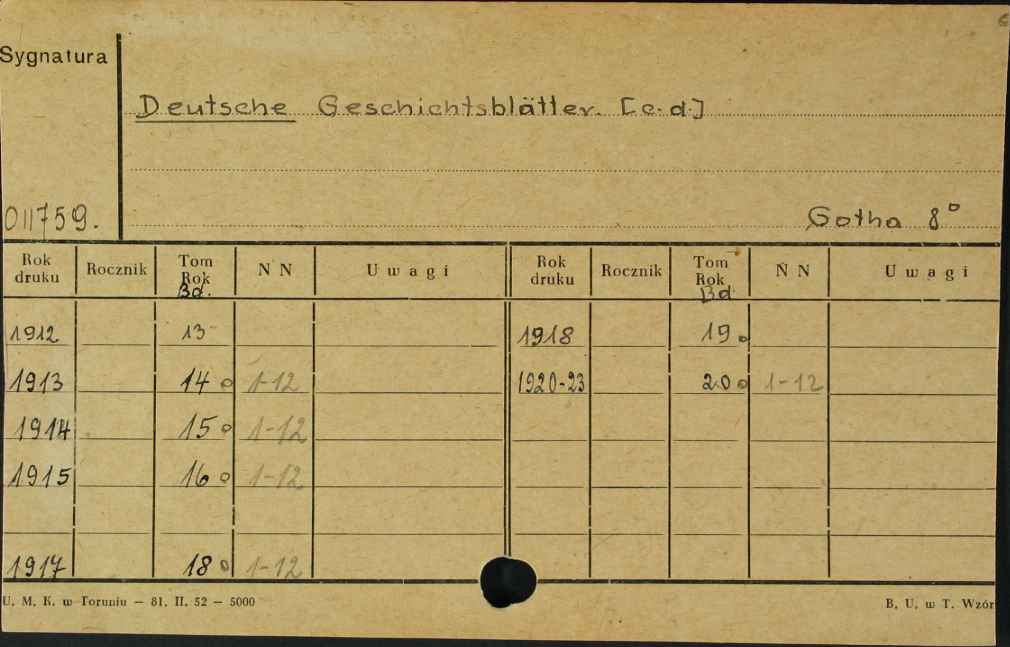 Sygnatura
Deutsche Geschichtsblätter. [c.d.]
011759.
Gotha 8°
Rok druku Rocznik Tom Rok Bd. N N Uwagi Rok druku Rocznik Tom Rok Bd N N Uwagi
1912 13 1918 19 o
1913 14 o 1-12 1920-23 20 o 1-12
1914 15 o 1-12
1915 16 o 1-12
1917 18 o 1-12
U. M. K. w Toruniu — 81. II. 52 — 5000 B. U. w T. Wzór